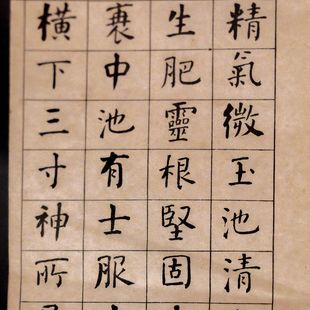 精氣微玉池清
生肥靈根堅固
衰中池有士服
橫下三寸神所